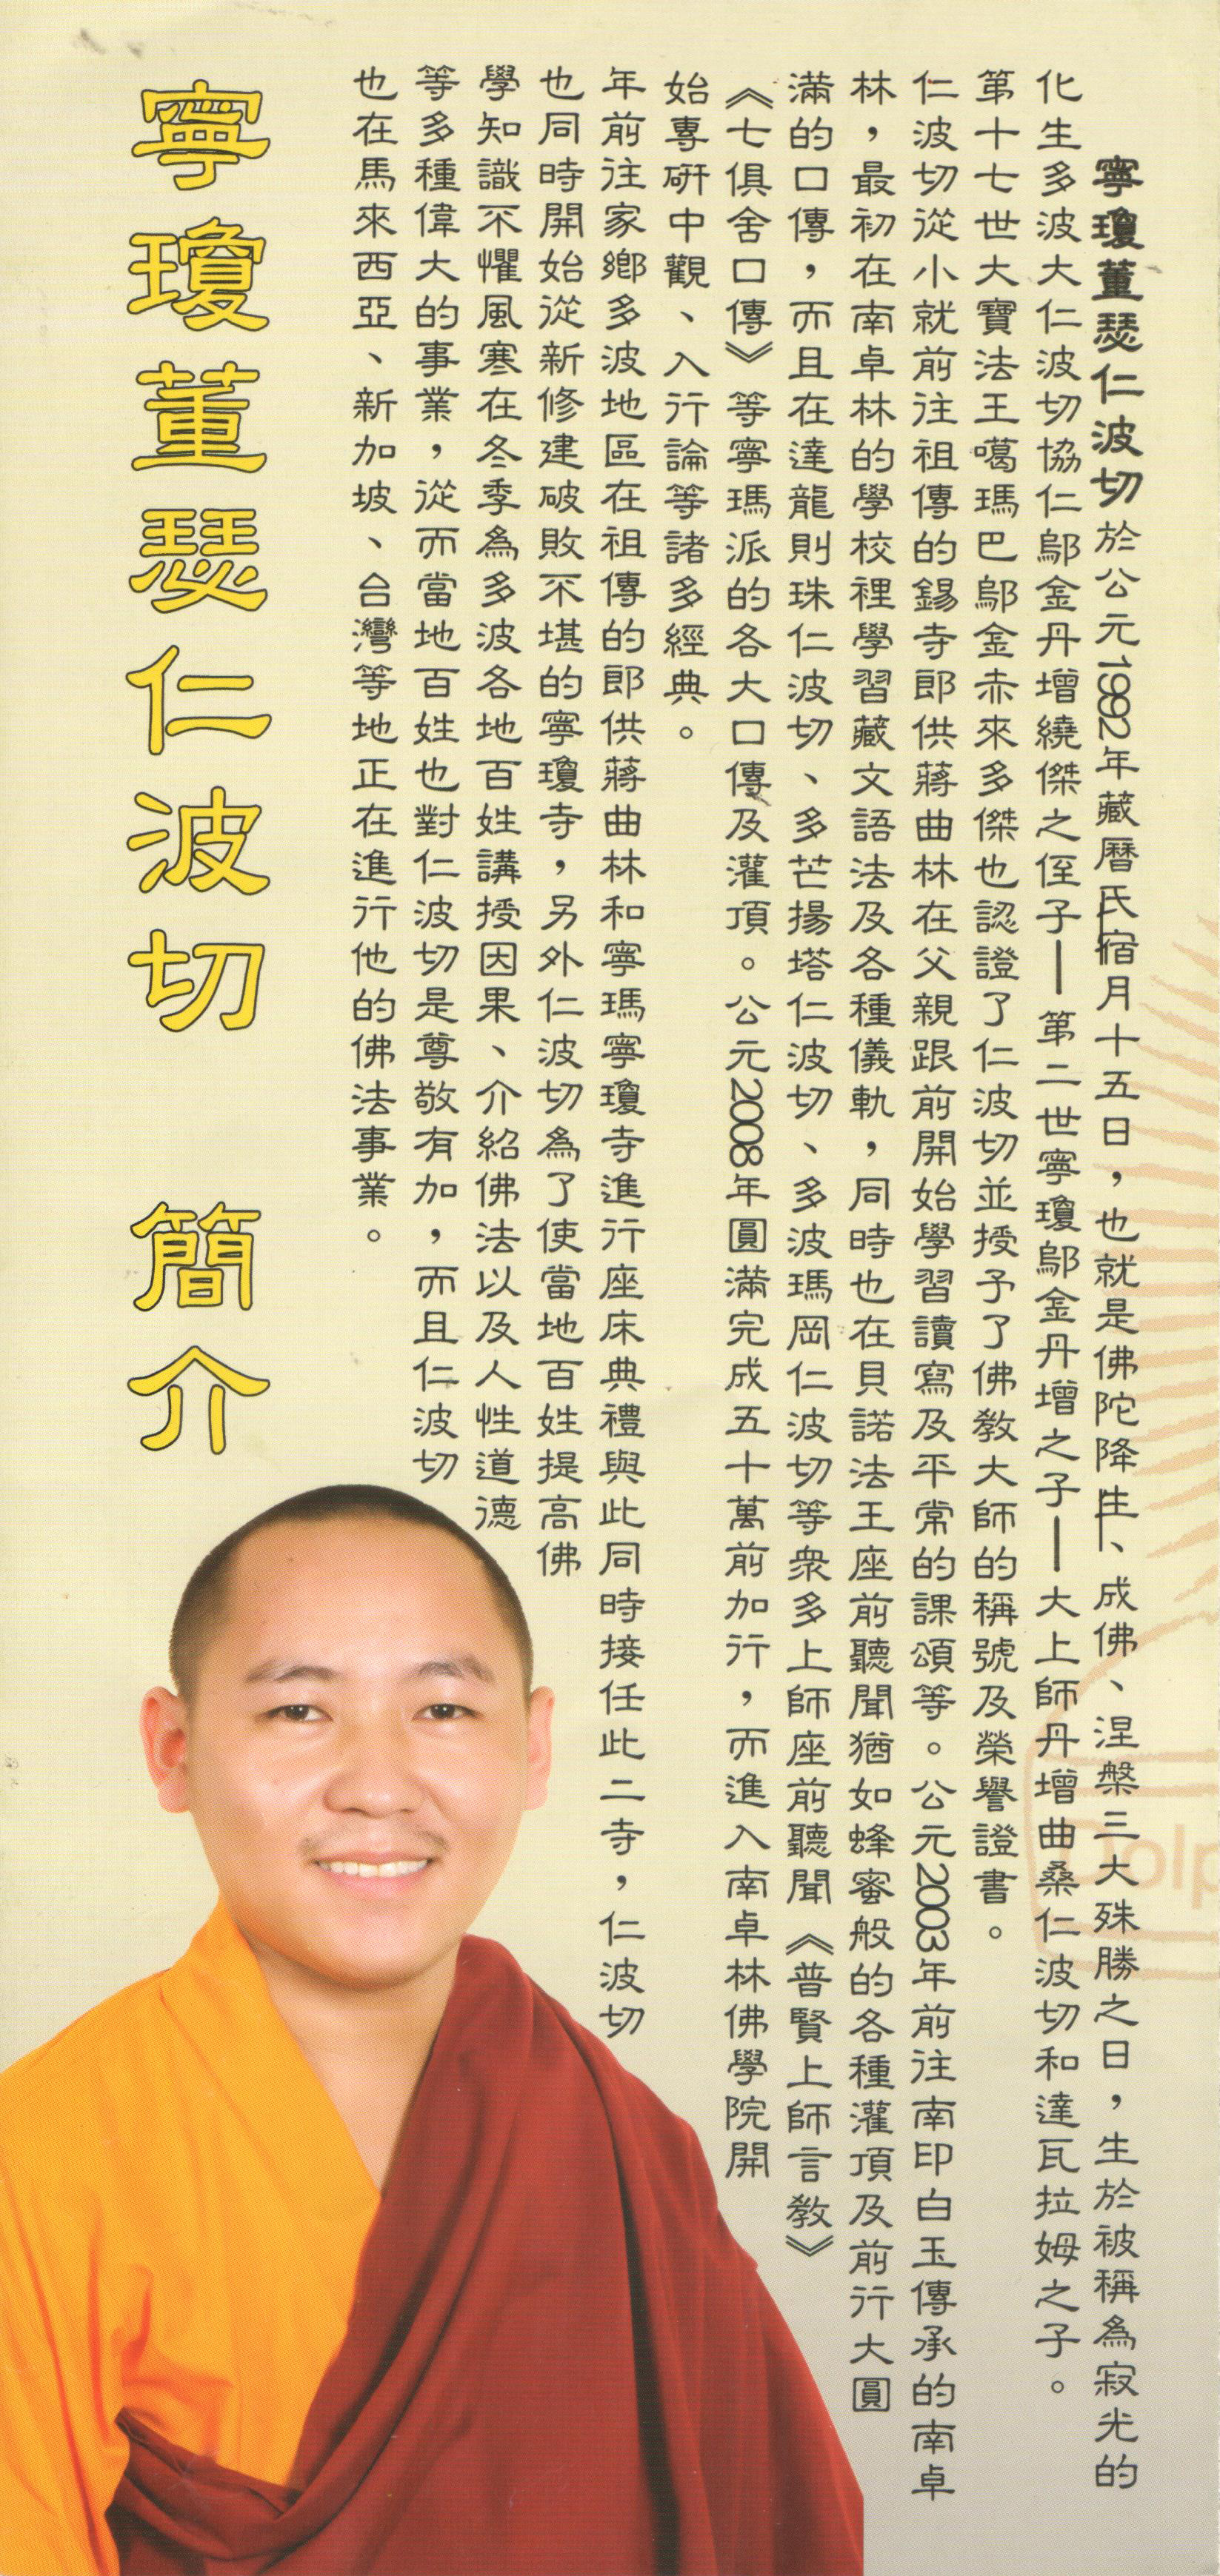 寧瓊董瑟仁波切於公元1992年藏曆氐宿月十五日，也就是佛陀降生、成佛、涅槃三大殊勝之日，生於被稱為寂光的
化生多波大仁波切協仁鄔金丹增繞傑之侄子—第二世寧瓊鄔金丹增之子—大上師丹增曲桑仁波切和達瓦拉姆之子。
第十七世大寶法王噶瑪巴鄔金赤來多傑也認證了仁波切並授予了佛教大師的稱號及榮譽證書。
仁波切從小就前往祖傳的錫寺郎供蔣曲林在父親跟前開始學習讀寫及平常的課頌等。公元2003年前往南印白玉傳承的南卓
林，最初在南卓林的學校裡學習藏文語法及各種儀軌，同時也在貝諾法王座前聽聞猶如蜂蜜般的各種灌頂及前行大圓
滿的口傳，而且在達龍則珠仁波切、多芒揚塔仁波切、多波瑪岡仁波切等眾多上師座前聽聞《普賢上師言教》
《七俱舍口傳》等寧瑪派的各大口傳及灌頂。公元2008年圓滿完成五十萬前加行，而進入南卓林佛學院開
始專研中觀、入行論等諸多經典。
年前往家鄉多波地區在祖傳的郎供蔣曲林和寧瑪寧瓊寺進行座床典禮與此同時接任此二寺，仁波切
也同時開始從新修建破敗不堪的寧瓊寺，另外仁波切為了使當地百姓提高佛
學知識不懼風寒在冬季為多波各地百姓講授因果、介紹佛法以及人性道德
等多種偉大的事業，從而當地百姓也對仁波切是尊敬有加，而且仁波切
也在馬來西亞、新加坡、台灣等地正在進行他的佛法事業。
寧瓊董瑟仁波切 簡介
Dolp